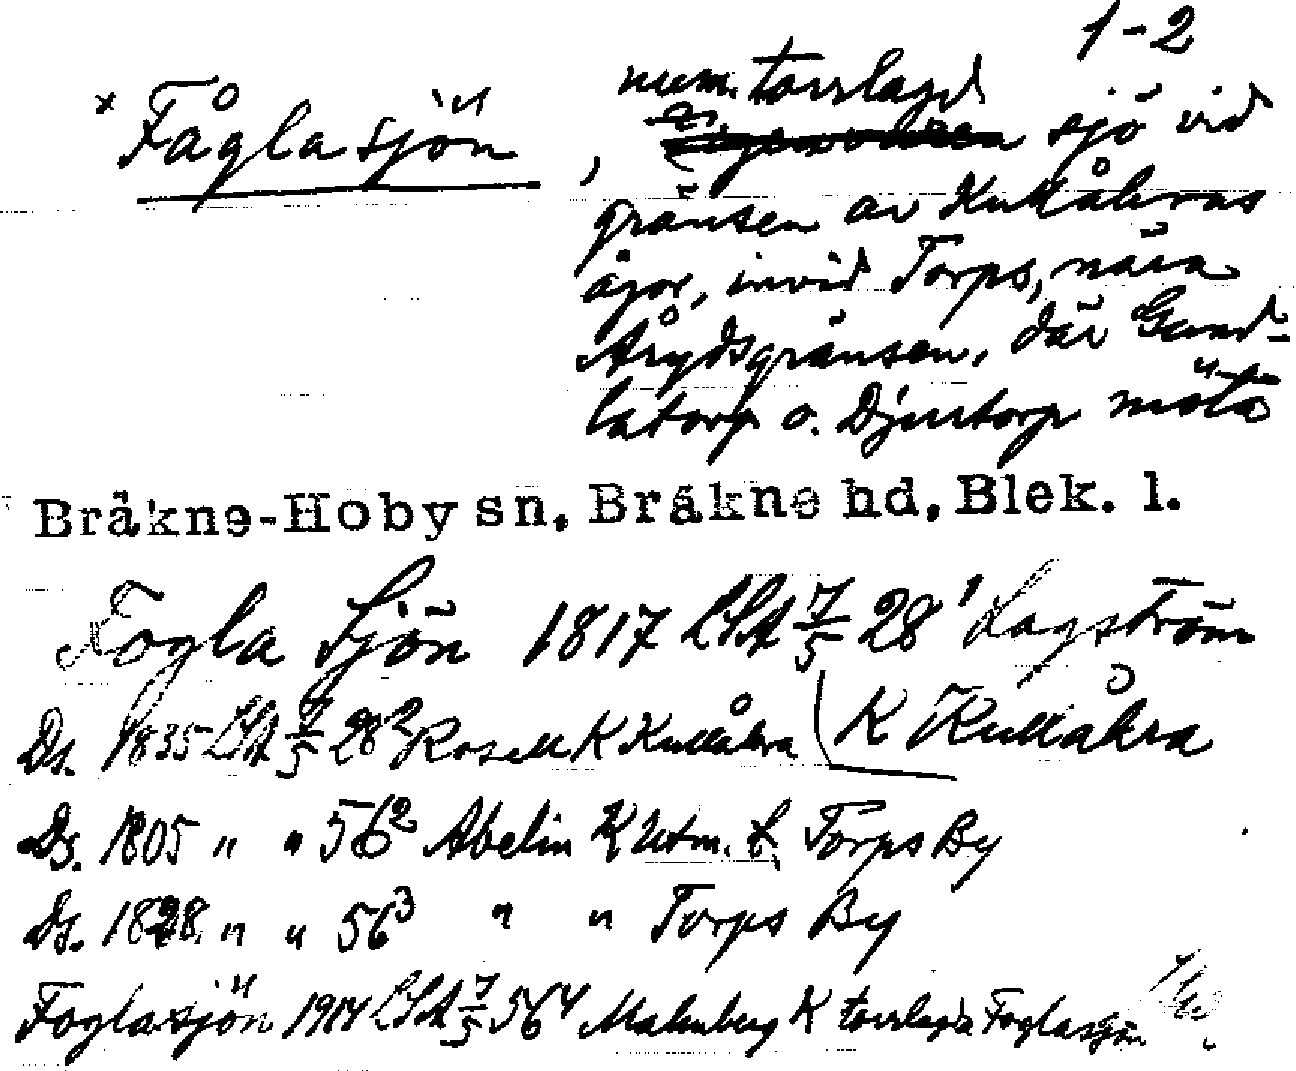 1-2
× Fåglasjön, num. torrlagd sjö vid
gränsen av Kullåkras
ägor, invid Torps, nära
Årydsgränsen, där Gund-
latorp o. Djurtorp möta
Bräkne-Hoby sn, Bräkne hd, Blek. l.
Fogla Sjön 1817 LSA 7/5 28¹ Lagström
K Kullåkra
Ds. 1835 LSA 7/5 28² Rosell K Kullåkra
Ds. 1805 " " 56² Abelin K Utm. t. Torps By
Ds. 1828 " " 56³ " " Torps By
Foglasjön 1914 LSA 7/5 56⁴ Malmberg K torrlagda Foglasjön